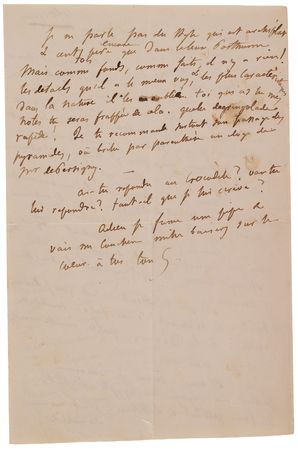 Je ne parle pas du style qui est archiplat
& cent fois pire encore que dans
Mais comme fonds, comme faits, il n'y a rien!
les détails qu'il a le mieux vus & les plus caractéristiques
dans la nature il les oublie. toi qui as lu mes
notes tu seras frappée de cela. quelle dégringolade
rapide! Je te recommande surtout son passage des
pyramides, où brille par parenthèse un éloge de
Mr de Persigny.
—
as-tu répondu au Crocodile? vas-tu
lui répondre? faut-il que je lui écrive?
—
Adieu je fume une pipe &
vais me coucher mille baisers sur le
cœur. à toi ton G